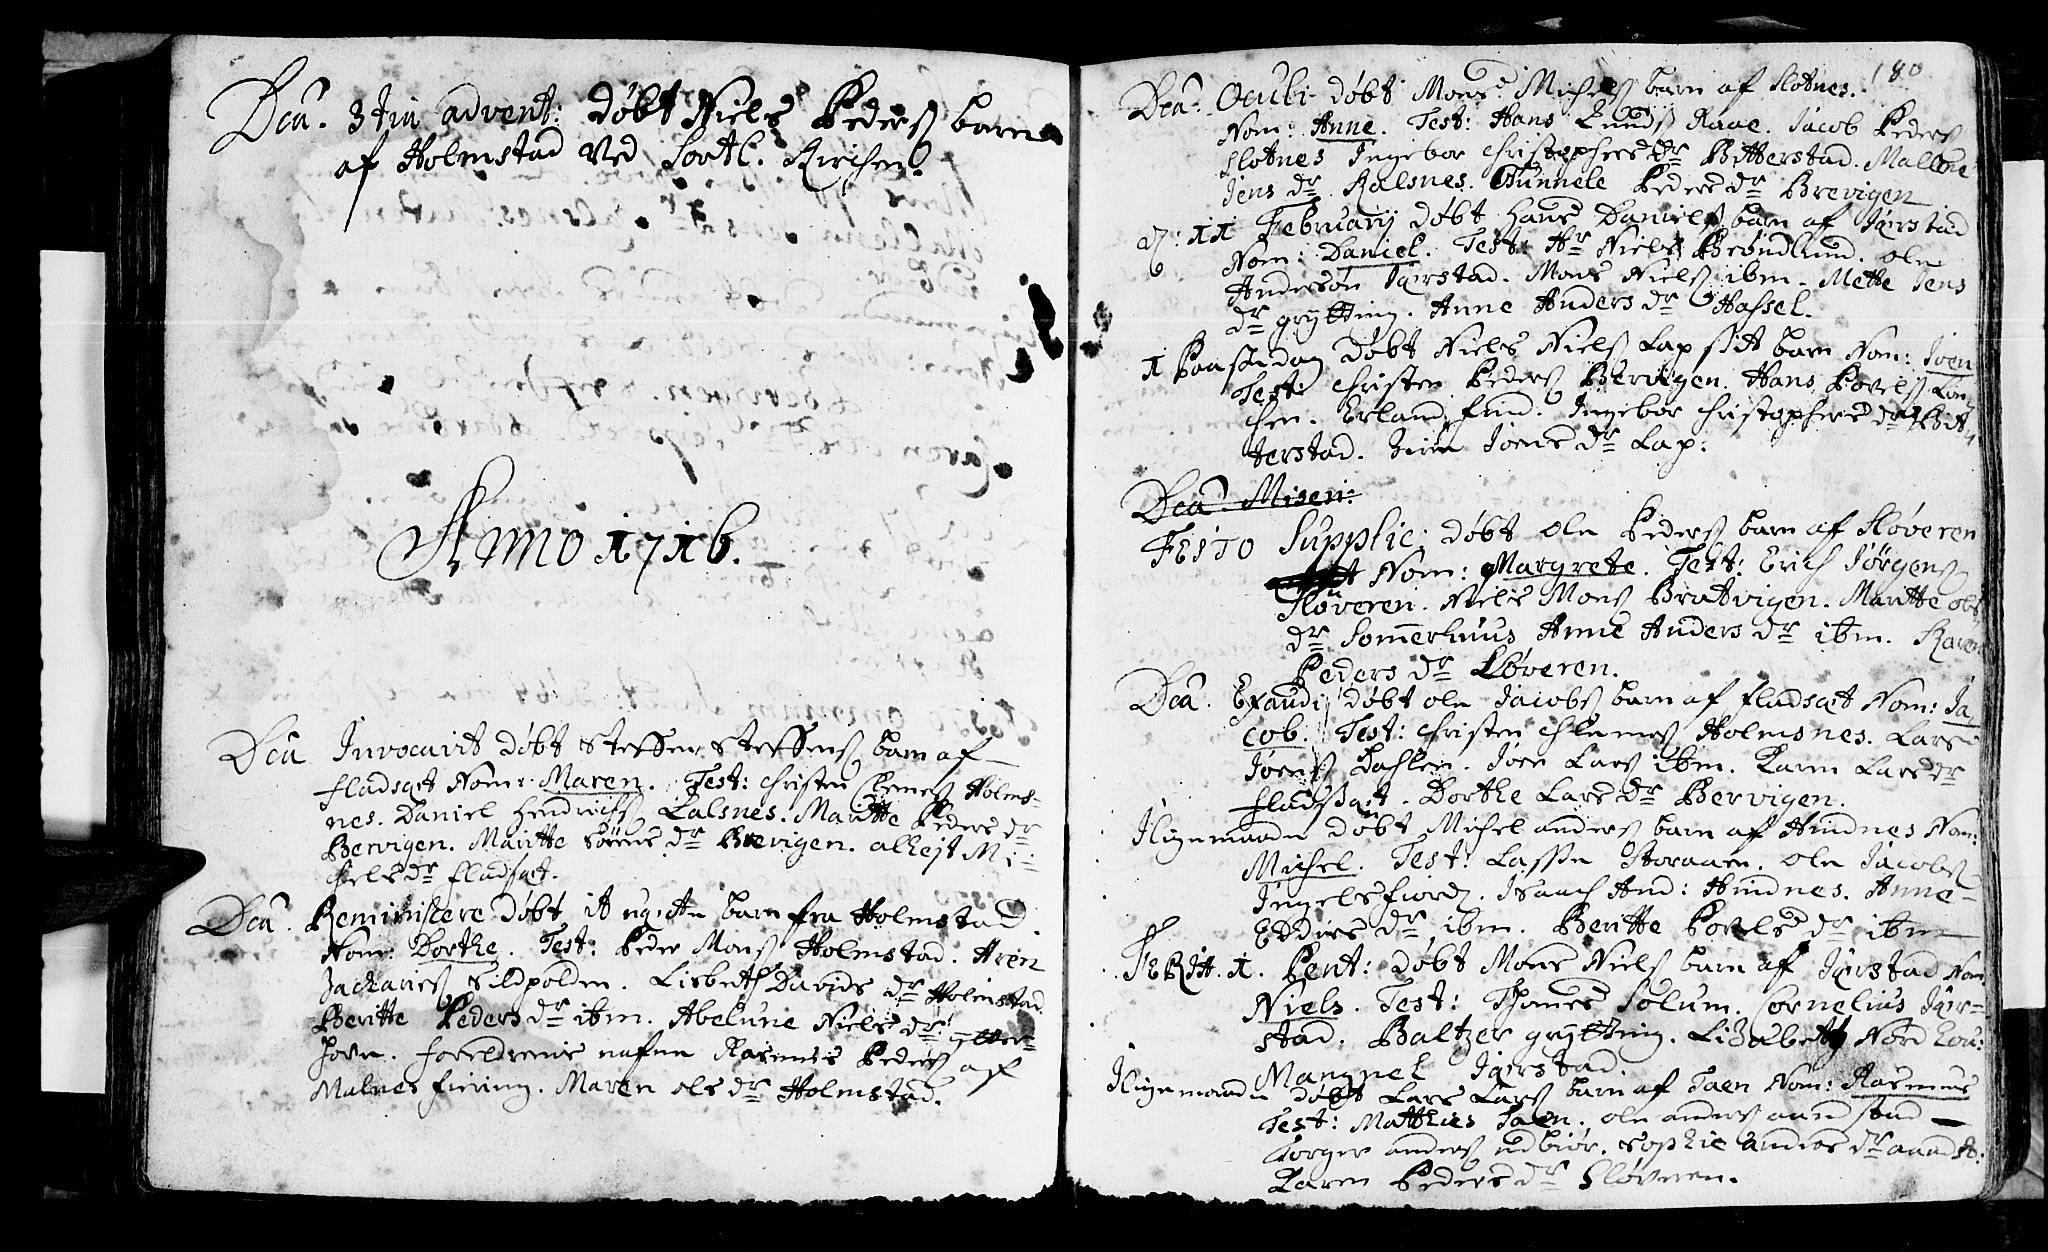 Dca. 3tia advent: Døbt Niels Pederß barn
af Holmstad Ved Sortl. Kirchen.
Anno 1716.
Dca Invocavit Døbt Steffen Steffenß barn af
fladsæt Nom: Maren. Test: Christen Clemeß Holms-
nes. Daniel Hendrichß Kalsnes. Maritte Peders dr
Bervigen. Maritte Sørens dr Brevigen. alhejt Mi-
chels dr fladsæt.
Dca. Reminiscere Døbt it uæcte barn fra Holmstad.
Nom: Dorthe. Test: Peder Monß Holmstad. Aren
Zachariß Sildpolden. Lisbeth Davids dr Holmstad
Beritte Peders dr ibm. Abelune Niels dr
forældrenis nafne Rasmus Pederß af
Malnes fiering. Maren ols dr Holmstad.
180
Dca. Oculi døbt Mons Michelß barn af Slotnes.
Nom: Anne. Test: Hans Knudß Raae. Jacob Pederß
Slotnes Ingebor Christophers dr Bitterstad. Mallene
Jens dr Kalsnes. Gunnele Peders dr Brevigen
d: 11 February døbt Hans Danielß barn af Jørstad
Nom: Daniel. Test: Hr Niels Brøndlund. ole
Andersøn Jørstad. Mons Nielß ibm. Mette Jens
dr grytting. Anne Anders dr Hassel.
1 Paaskedag Døbt Niels Nielß Lap sit barn Nom: Joen
Test: Christen Pederß Bervigen. Hans Povelß
chen. Erland find. Ingebor Christophers dr Bit-
terstad. Joens dr Lap.
Dca. Misen:
FESTO Supplic: døbt ole Pederß barn af Sløveren
Nom: Margrete. Test: Erich Jørgenß
Sløveren. Niels Monß Bratvigen. Maritte ols
dr Sommerhuus Anne Anders dr ibm. Karen
Peders dr Sløveren.
Dca. Exaudi døbt ole Jacobß barn af fladsæt Nom: Ja-
cob. Test: Christen Clemeß Holmsnes. Lars
Joenß Dahlen. Joen Larß ibm. Karen Lars dr
fladsæt. Dorthe Lars dr Bervigen.
Iligemaade døbt Michel anderß barn af Hindnes Nom:
Michel. Test: Lasse Storaaen. ole Jacobß
Ingelsfiord. Isaach And: Hindnes. Anne
dr ibm. Beritte Povels dr ibm
FERIA. 1. Pent: døbt Mons Nielß barn af Jørstad Nom.
Niels. Test: Thomes Solum. Cornelius Jør-
stad. Baltzer grytting. Lizabeth Nord
Mangnel Jørstad.
Iligemaade døbt Lars Larß barn af Taen Nom: Rasmus
Test: Matthies Taen. ole anderß aand stad
Jørgen anderß udbiør. Sophie anders dr aandst:
Karen Peders dr Sløveren.